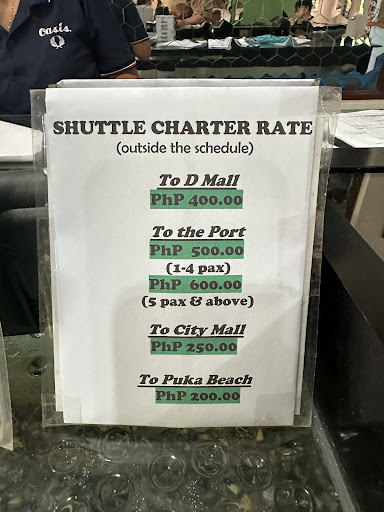 Oasis
SHUTTLE CHARTER RATE
(outside the schedule)
To D Mall
PhP 400.00
To the Port
PhP 500.00
(1-4 pax)
PhP 600.00
(5 pax & above)
To City Mall
PhP 250.00
To Puka Beach
PhP 200.00